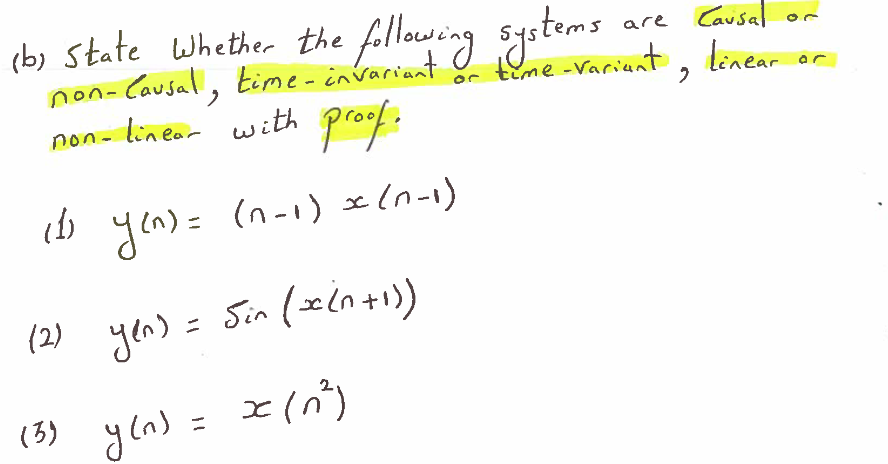 (b) State Whether the following systems are Causal or
non-Causal, time-invariant or time-variant, linear or
non-linear with proof.
(1) y(n) = (n-1) x(n-1)
(2) y(n) = Sin (x(n+1))
(3) y(n) = x(n²)